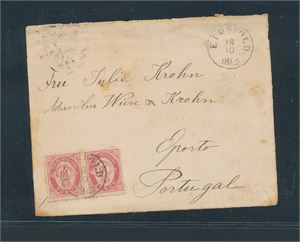 EIDSVOLD
18
10
1882
Fru Julie Krohn
Wiese & Krohn
Oporto
Portugal
10